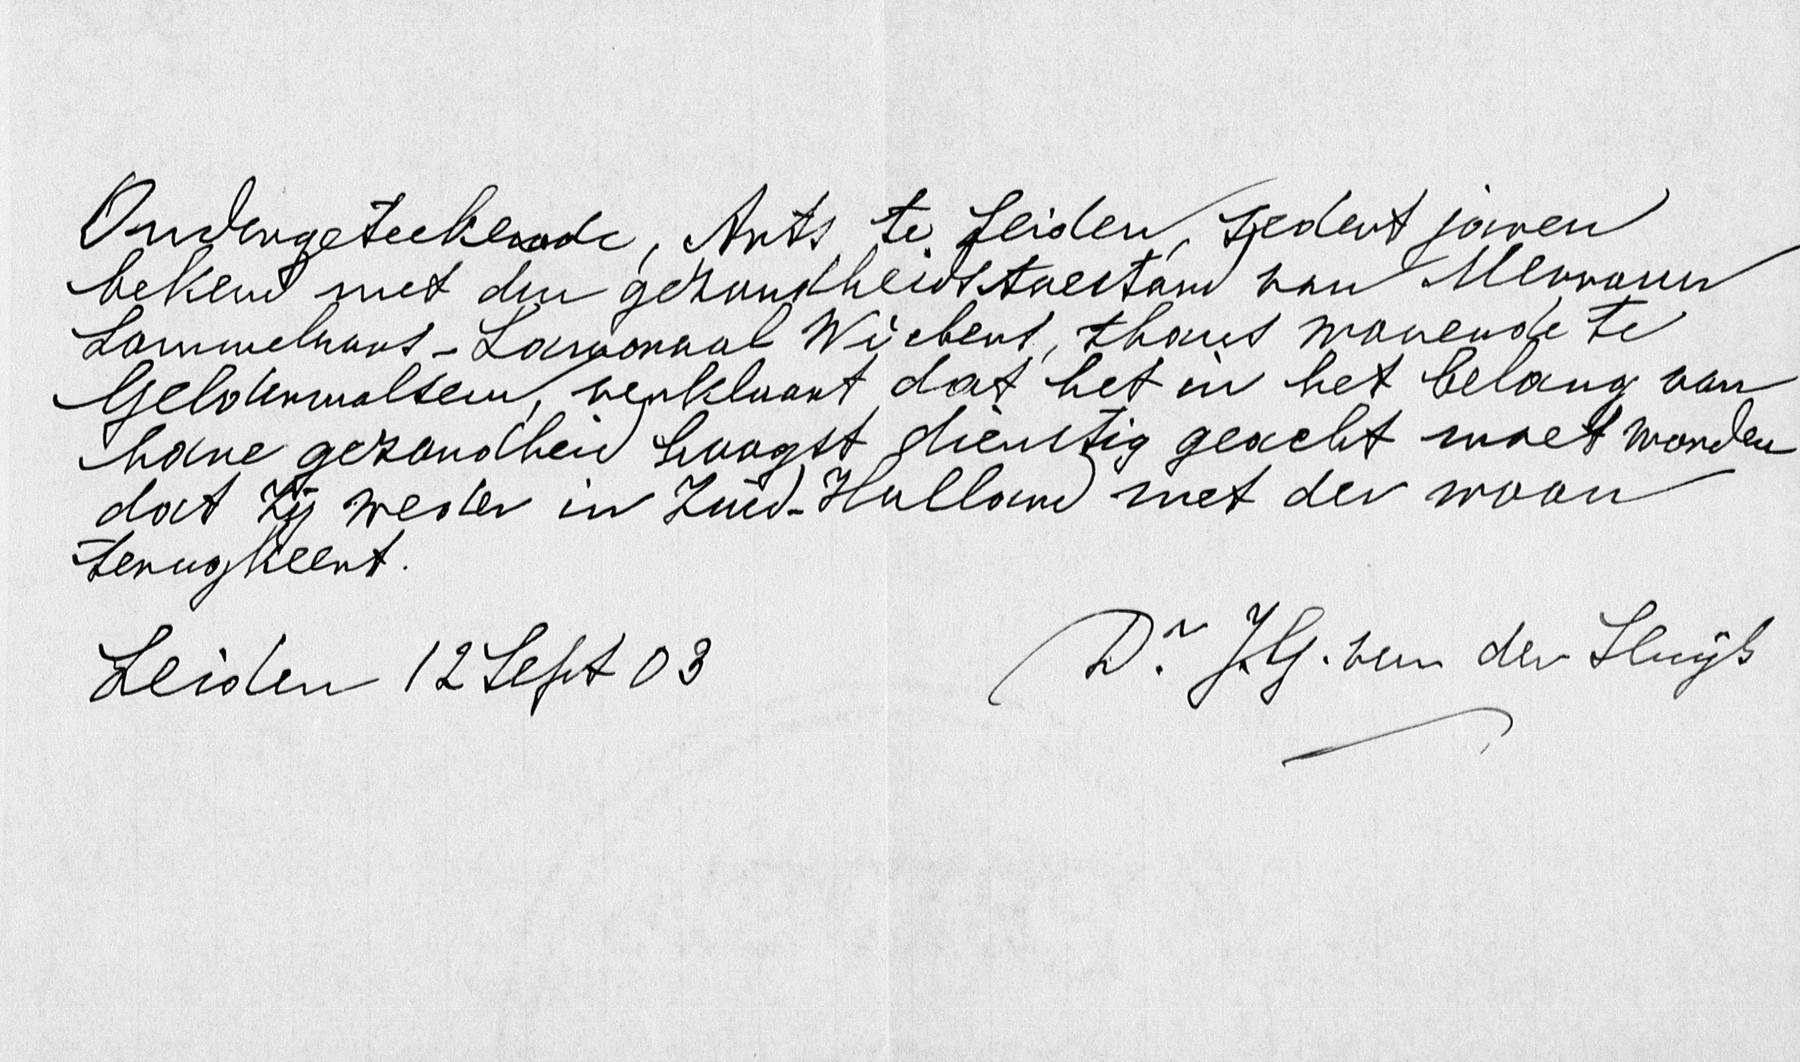 Ondergeteekende, Arts te Leiden, sedert jaren
bekend met den gezondheidstoestand van Mevrouw
Wiebens, thans wonende te
Geldermalsen, verklaart dat het in het belang van
hare gezondheid hoogst dienstig geacht moet worden
dat Zij weder in Zuid-Holland met der woon
terugkeert.
Leiden 12 Sept 03
Dr. J.G. van der Sluijs